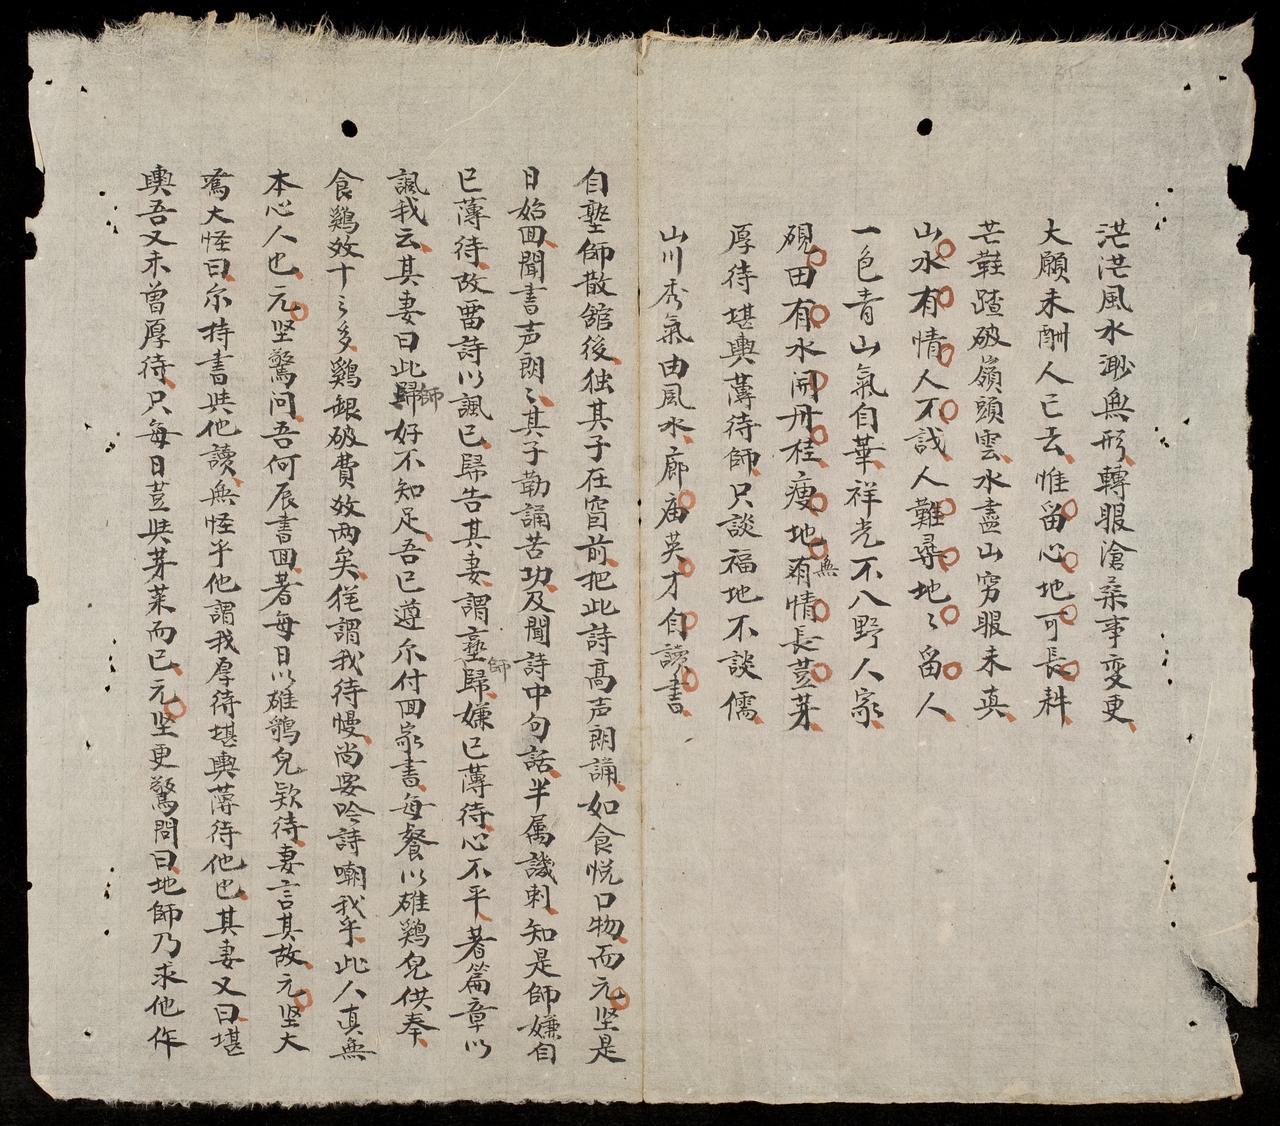 茫茫風水渺無形轉眼滄桑事变更
大願未酬人已去惟留心地可長耕
芒鞋踏破嶺頭雲水盡山穷眼未真
山水有情人不識人難尋地〻留人
一色青山氣自華祥光不入野人家
硯田有水開丹桂瘦地無情長荳芽
厚待堪輿薄待師只談福地不談儒
山川秀氣由風水廊庙英才自讀書
自塾師散舘後独其子在窗前把此詩高声朗誦如食悅口物而元坚是
日始回聞書声朗〻其子勤誦苦功及聞詩中句話半属譏刺知是師嫌自
已薄待故留詩以諷已歸告其妻謂塾師歸嫌已薄待心不平著篇章以
諷我云其妻曰此師好不知足吾已遵尔付回家書每餐以雄鷄兒供奉
食鷄效十〻多鷄銀破費效两矣猶謂我待慢尚要吟詩嘲我乎此人真無
本心人也元坚驚问吾何辰書回著每日以雄鷄兒欵待妻言其故元坚大
駡大怪曰尔持書共他讀無怪乎他謂我厚待堪輿薄待他也其妻又曰堪
輿吾又未曾厚待只每日荳共芽菜而已元坚更驚問曰地師乃求他作